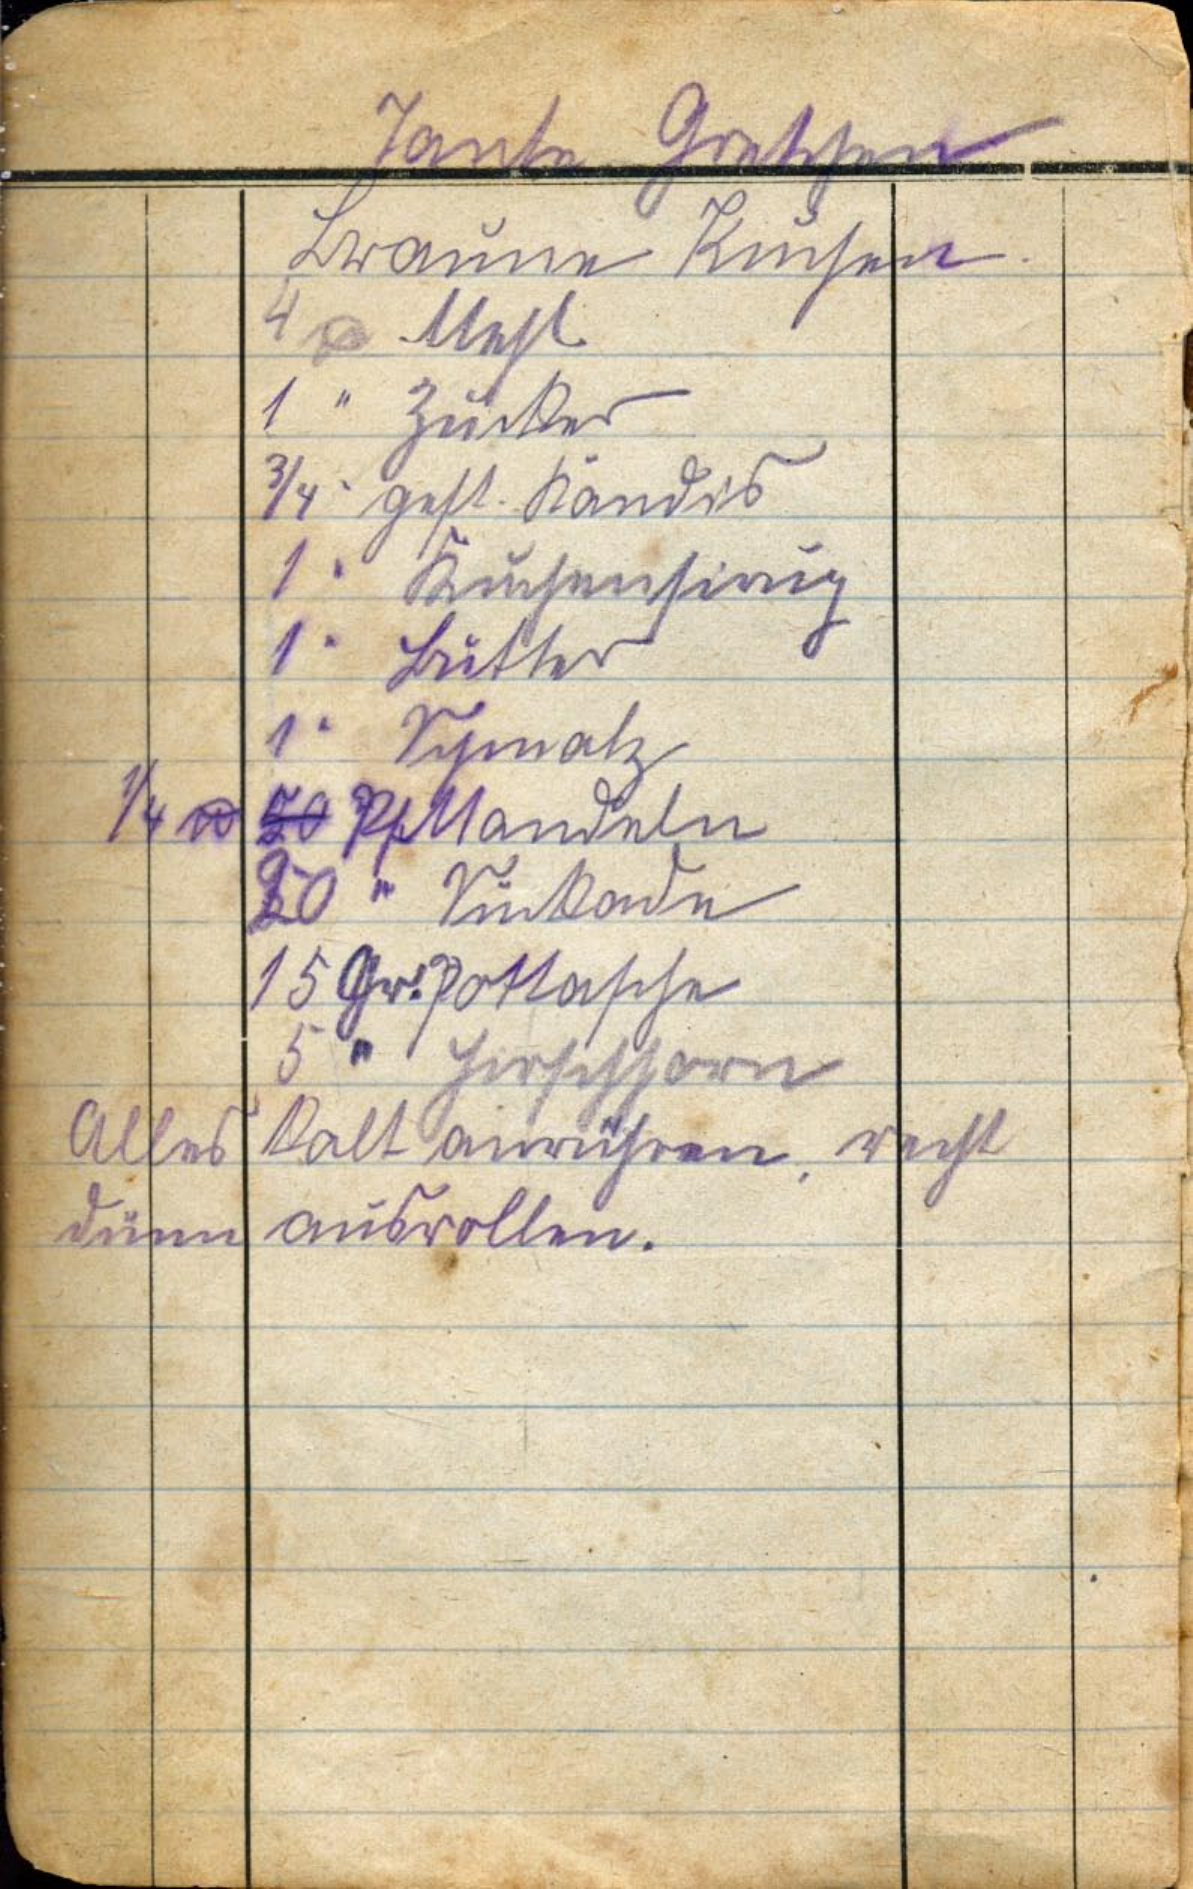 Tante Gretchen
Braune Kuchen.
4 ℔ Mehl
1 " Zucker
3/4 " gest. Kandis
1 " Kuchensirup
1 " Butter
1 " Schmalz
1/4 ℔ 50 Pf Mandeln
20 " Sukkade
15 Gr. Pottasche
5 " Hirschhorn
Alles kalt anrühren, recht
dünn ausrollen.